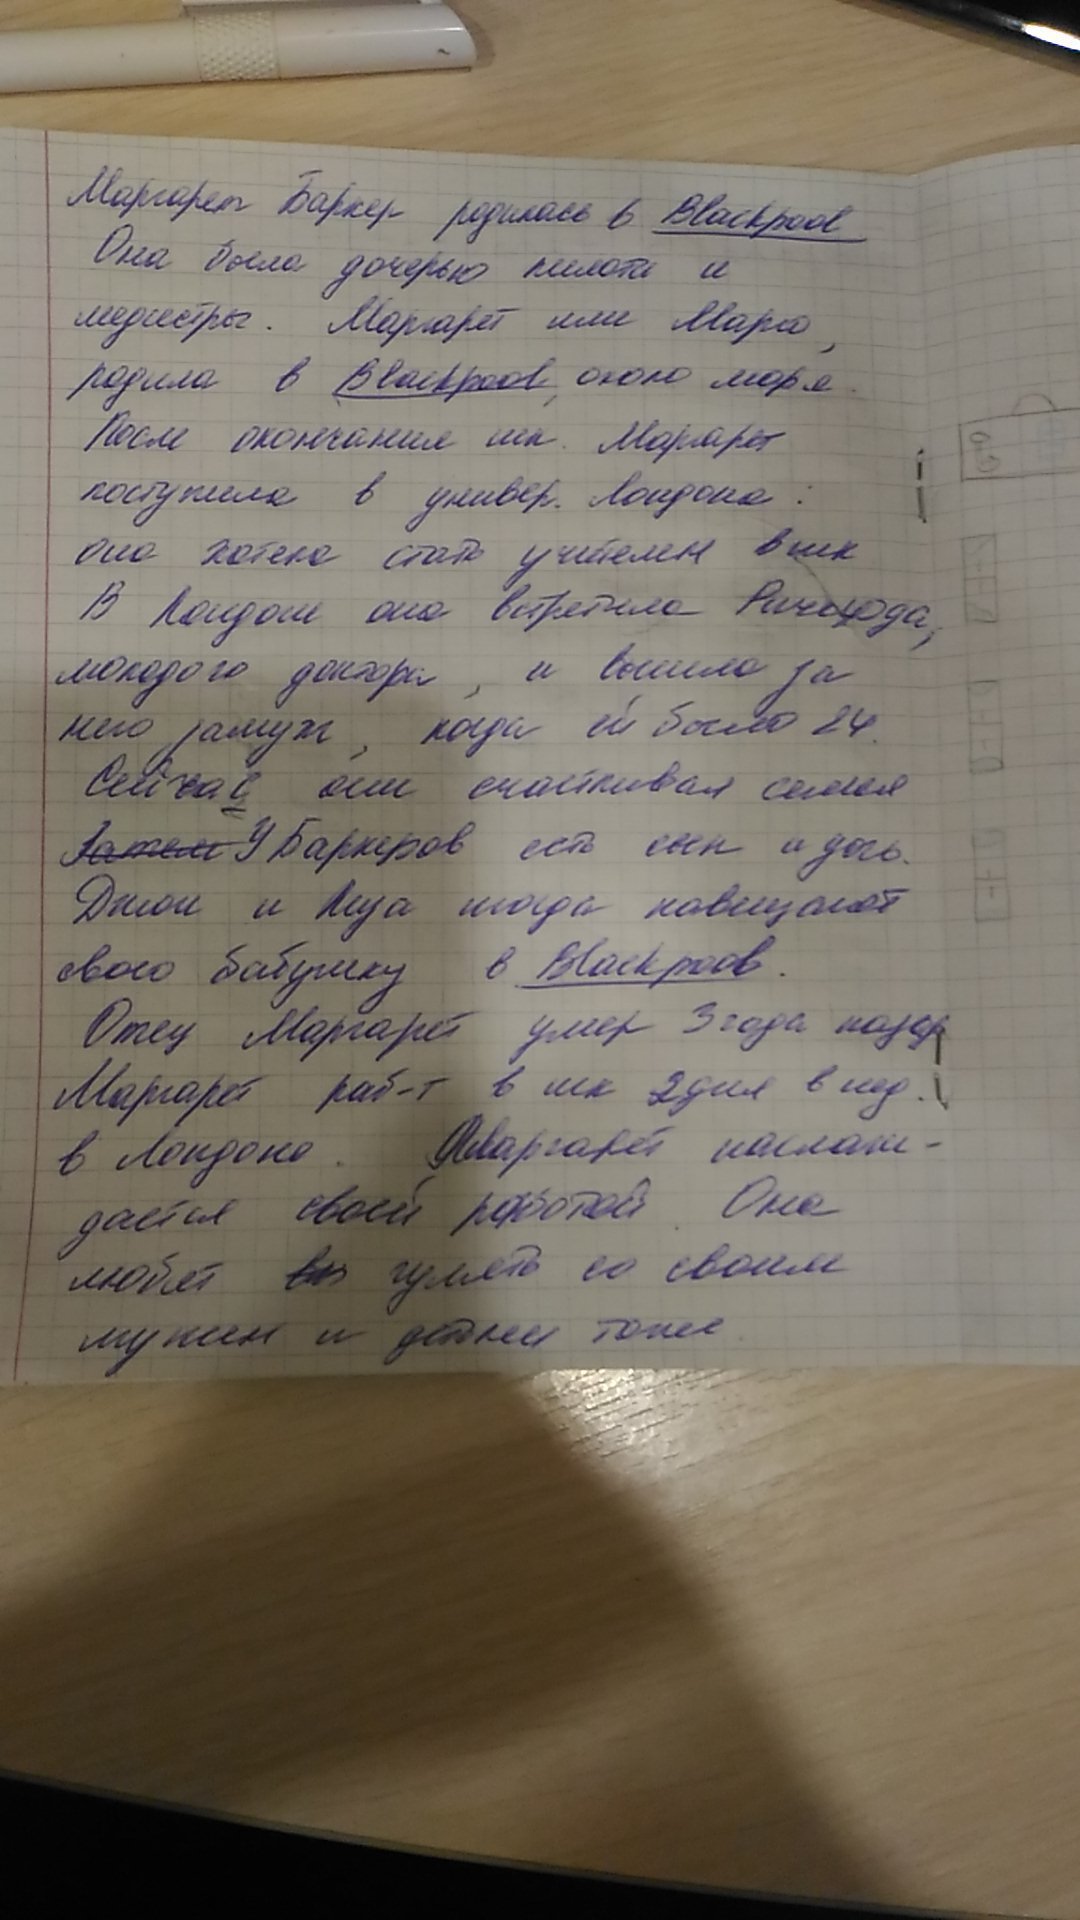 Маргарет Баркер родилась в Blackpool
Она была дочерью пилота и
медсестры. Маргарет или Марго,
родила в Blackpool, около моря.
После окончания шк. Маргарет
поступила в универ. Лондона:
она хотела стать учителем в шк
В Лондоне она встретила Ричарда,
молодого доктора, и вышла за
него замуж, когда ей было 24.
Сейчас они счастливая семья
Затем У Баркеров есть сын и дочь.
Джон и Лиза иногда навещают
свою бабушку в Blackpool.
Отец Маргарет умер 3 года назад
Маргарет раб-т в шк 2 дня в нед.
в Лондоне. Маргарет наслаж-
дается своей работой. Она
любит гулять со своим
мужем и детьми тоже.